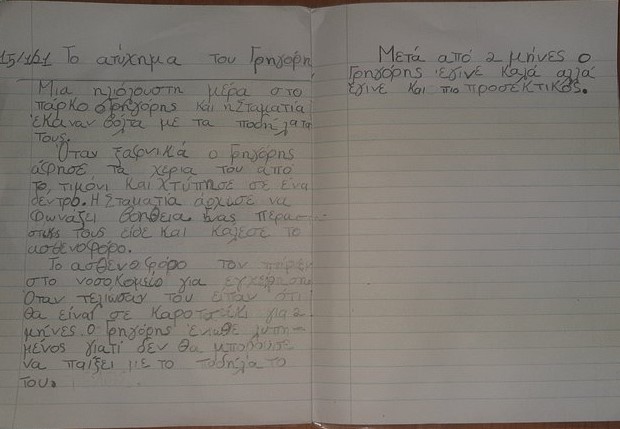 15/12/1 Το ατύχημα του Γρηγόρη
Μια ηλιόλουστη μέρα στο
πάρκο ο Γρηγόρης και η Σταματία
έκαναν βόλτα με τα ποδήλατα
τους.
Όταν ξαφνικά ο Γρηγόρης
άφησε τα χέρια του από
το τιμόνι και χτύπησε σε ένα
δέντρο. Η Σταματία άρχισε να
φωνάζει βοήθεια. Ένας περασ-
τικός τους είδε και κάλεσε το
ασθενοφόρο.
Το ασθενοφόρο τον πήγε
στο νοσοκομείο για εγχείρηση
Όταν τελίωσαν του είπαν ότι
θα είναι σε καροτσάκι για 2
μήνες. Ο Γρηγόρης ένιωθε λυπη-
μένος γιατί δεν θα μπορούσε
να παίξει με το ποδήλατο
του.
Μετά από 2 μήνες ο
Γρηγόρης έγινε καλά αλλά
έγινε και πιο προσεκτικός.